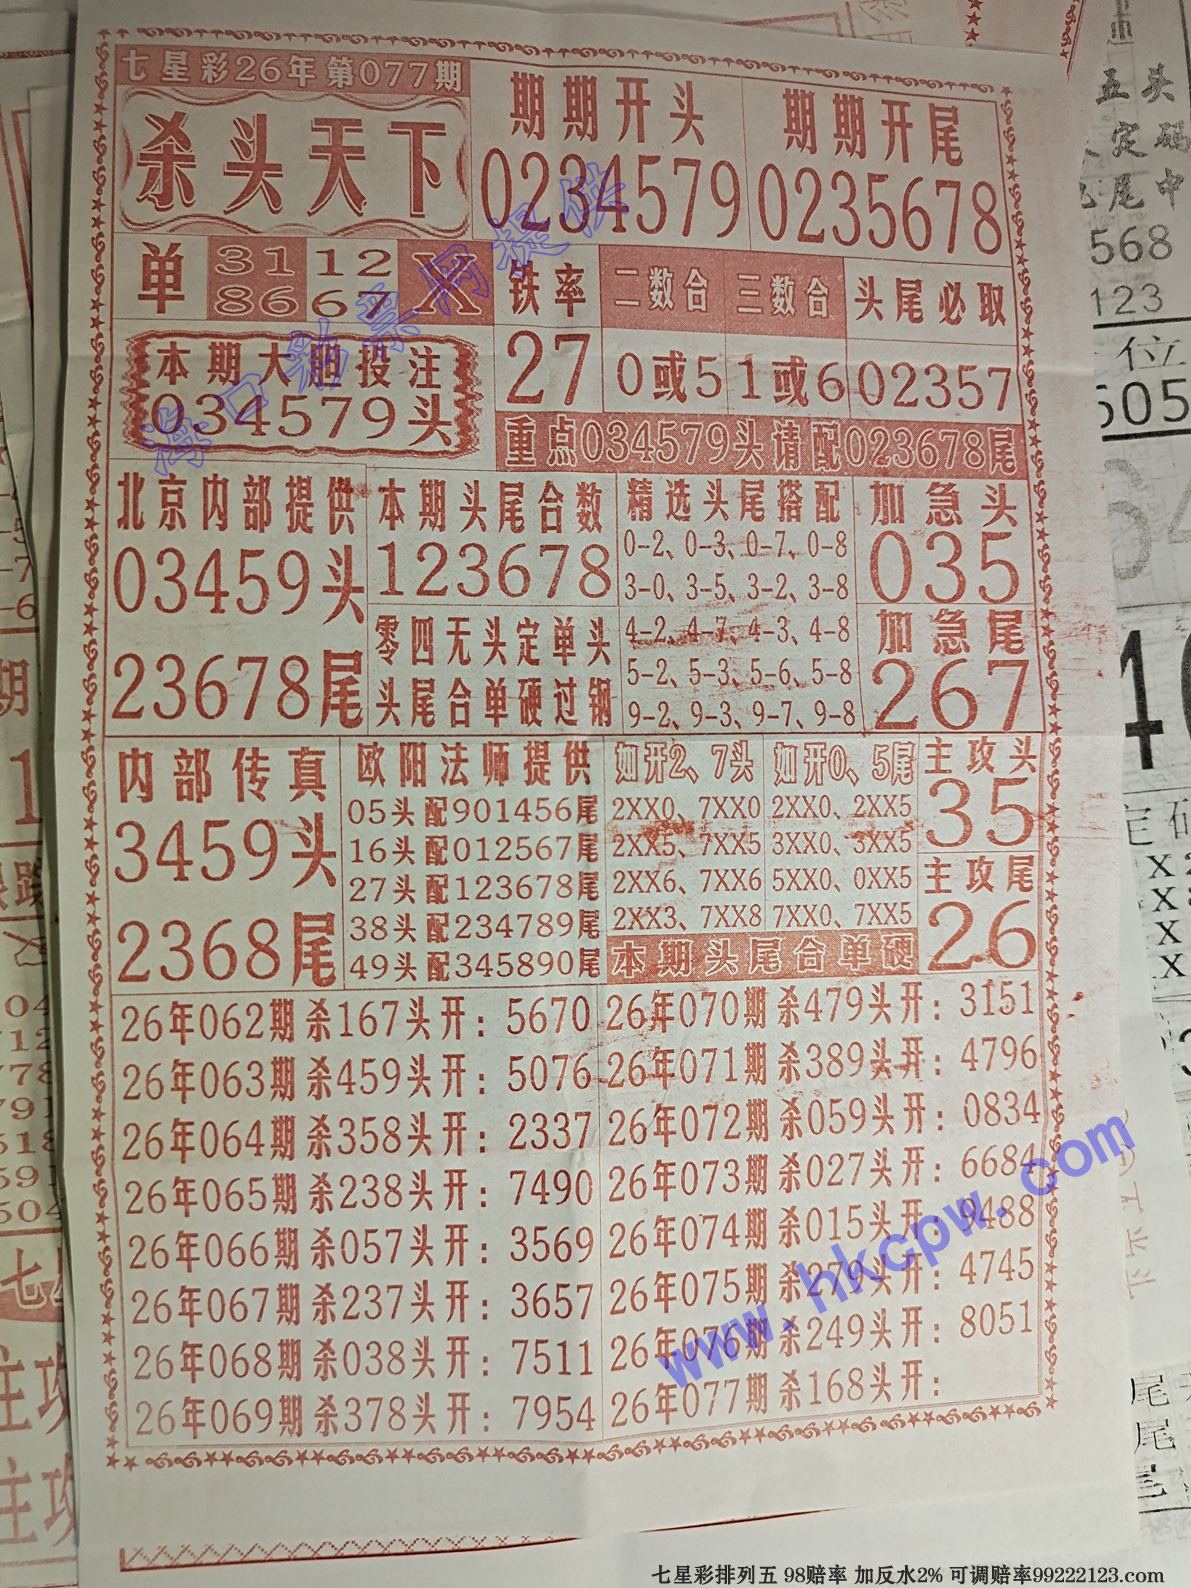 七星彩26年第077期
杀头天下
期期开头
0234579
期期开尾
0235678
单
31
86
12
67
X
铁率
27
二数合
0或5
三数合
1或6
头尾必取
02357
本期大胆投注
034579头
重点034579头请配023678尾
北京内部提供
03459头
23678尾
本期头尾合数
123678
零四无头定单头
头尾合单硬过钢
精选头尾搭配
0-2、0-3、0-7、0-8
3-0、3-5、3-2、3-8
4-2、4-7、4-3、4-8
5-2、5-3、5-6、5-8
9-2、9-3、9-7、9-8
加急头
035
加急尾
267
内部传真
3459头
2368尾
欧阳法师提供
05头配901456尾
16头配012567尾
27头配123678尾
38头配234789尾
49头配345890尾
如开2、7头
2XX0、7XX0
2XX5、7XX5
2XX6、7XX6
2XX3、7XX8
如开0、5尾
2XX0、2XX5
3XX0、3XX5
5XX0、0XX5
7XX0、7XX5
本期头尾合单硬
主攻头
35
主攻尾
26
26年062期杀167头开：5670
26年063期杀459头开：5076
26年064期杀358头开：2337
26年065期杀238头开：7490
26年066期杀057头开：3569
26年067期杀237头开：3657
26年068期杀038头开：7511
26年069期杀378头开：7954
26年070期杀479头开：3151
26年071期杀389头开：4796
26年072期杀059头开：0834
26年073期杀027头开：6684
26年074期杀015头开：9488
26年075期杀279头开：4745
26年076期杀249头开：8051
26年077期杀168头开：
海口彩票网提供
www.hkcpw.com
五头
定码
尾中
568
123
位
605
尾
尾
尾
七星彩排列五 98赔率 加反水2% 可调赔率99222123.com